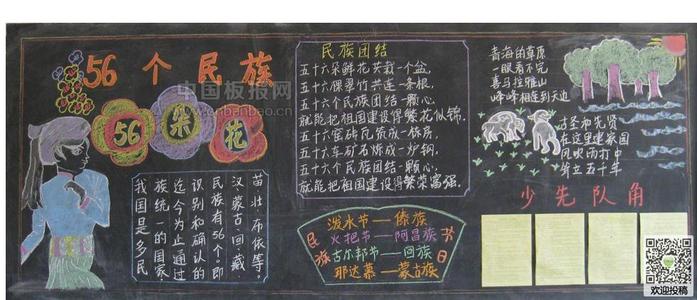 56个民族
中国板报网
www.cnbanbao.cn
56朵花
我国是多民
族统一的国家
迄今为止通过
识别和确认的
民族有56个。即
汉蒙古回藏
苗壮布依等。
民族团结
五十六朵鲜花共栽一个盆,
五十六棵翠竹共连一条根,
五十六个民族团结一颗心,
就能把祖国建设得繁花似锦。
五十六窑砖瓦筑成一栋房,
五十六车矿石炼成一炉钢,
五十六个民族团结一颗心,
就能把祖国建设得繁荣富强。
民族节日
泼水节—傣族
火把节—阿昌族
古尔邦节—回族
那达慕—蒙古族
青海的草原
一眼看不完
喜马拉雅山
峰峰相连到天边
古圣和先贤
在这里建家园
风吹雨打中
耸立五千年
少先队角
欢迎投稿